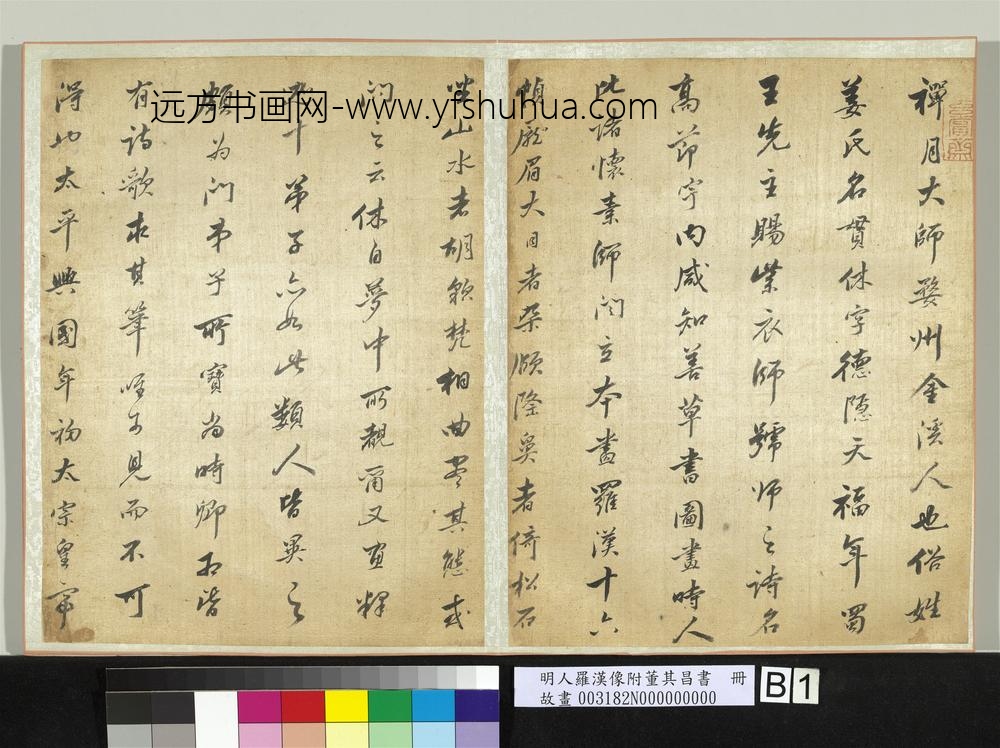 远方书画网-www.yfshuhua.com
禪月大師婺州金溪人也俗姓
姜氏名貫休字德隱天福年蜀
王先主賜紫衣師號師之詩名
高節宇內咸知善草書圖畫時人
比諸懷素師閻立本畫羅漢十六
幀龐眉大目者朶頤隆鼻者倚松石
坐山水者胡貌梵相曲盡其態或
問之云休自夢中所覩爾又畫釋
十弟子亦如此類人皆異之
頗為門弟子所寶當時卿相皆
有詩歌求其筆唯可見而不可
得也太平興國年初太宗皇帝
明人羅漢像附董其昌書 冊
故畫 003182N000000000
B 1